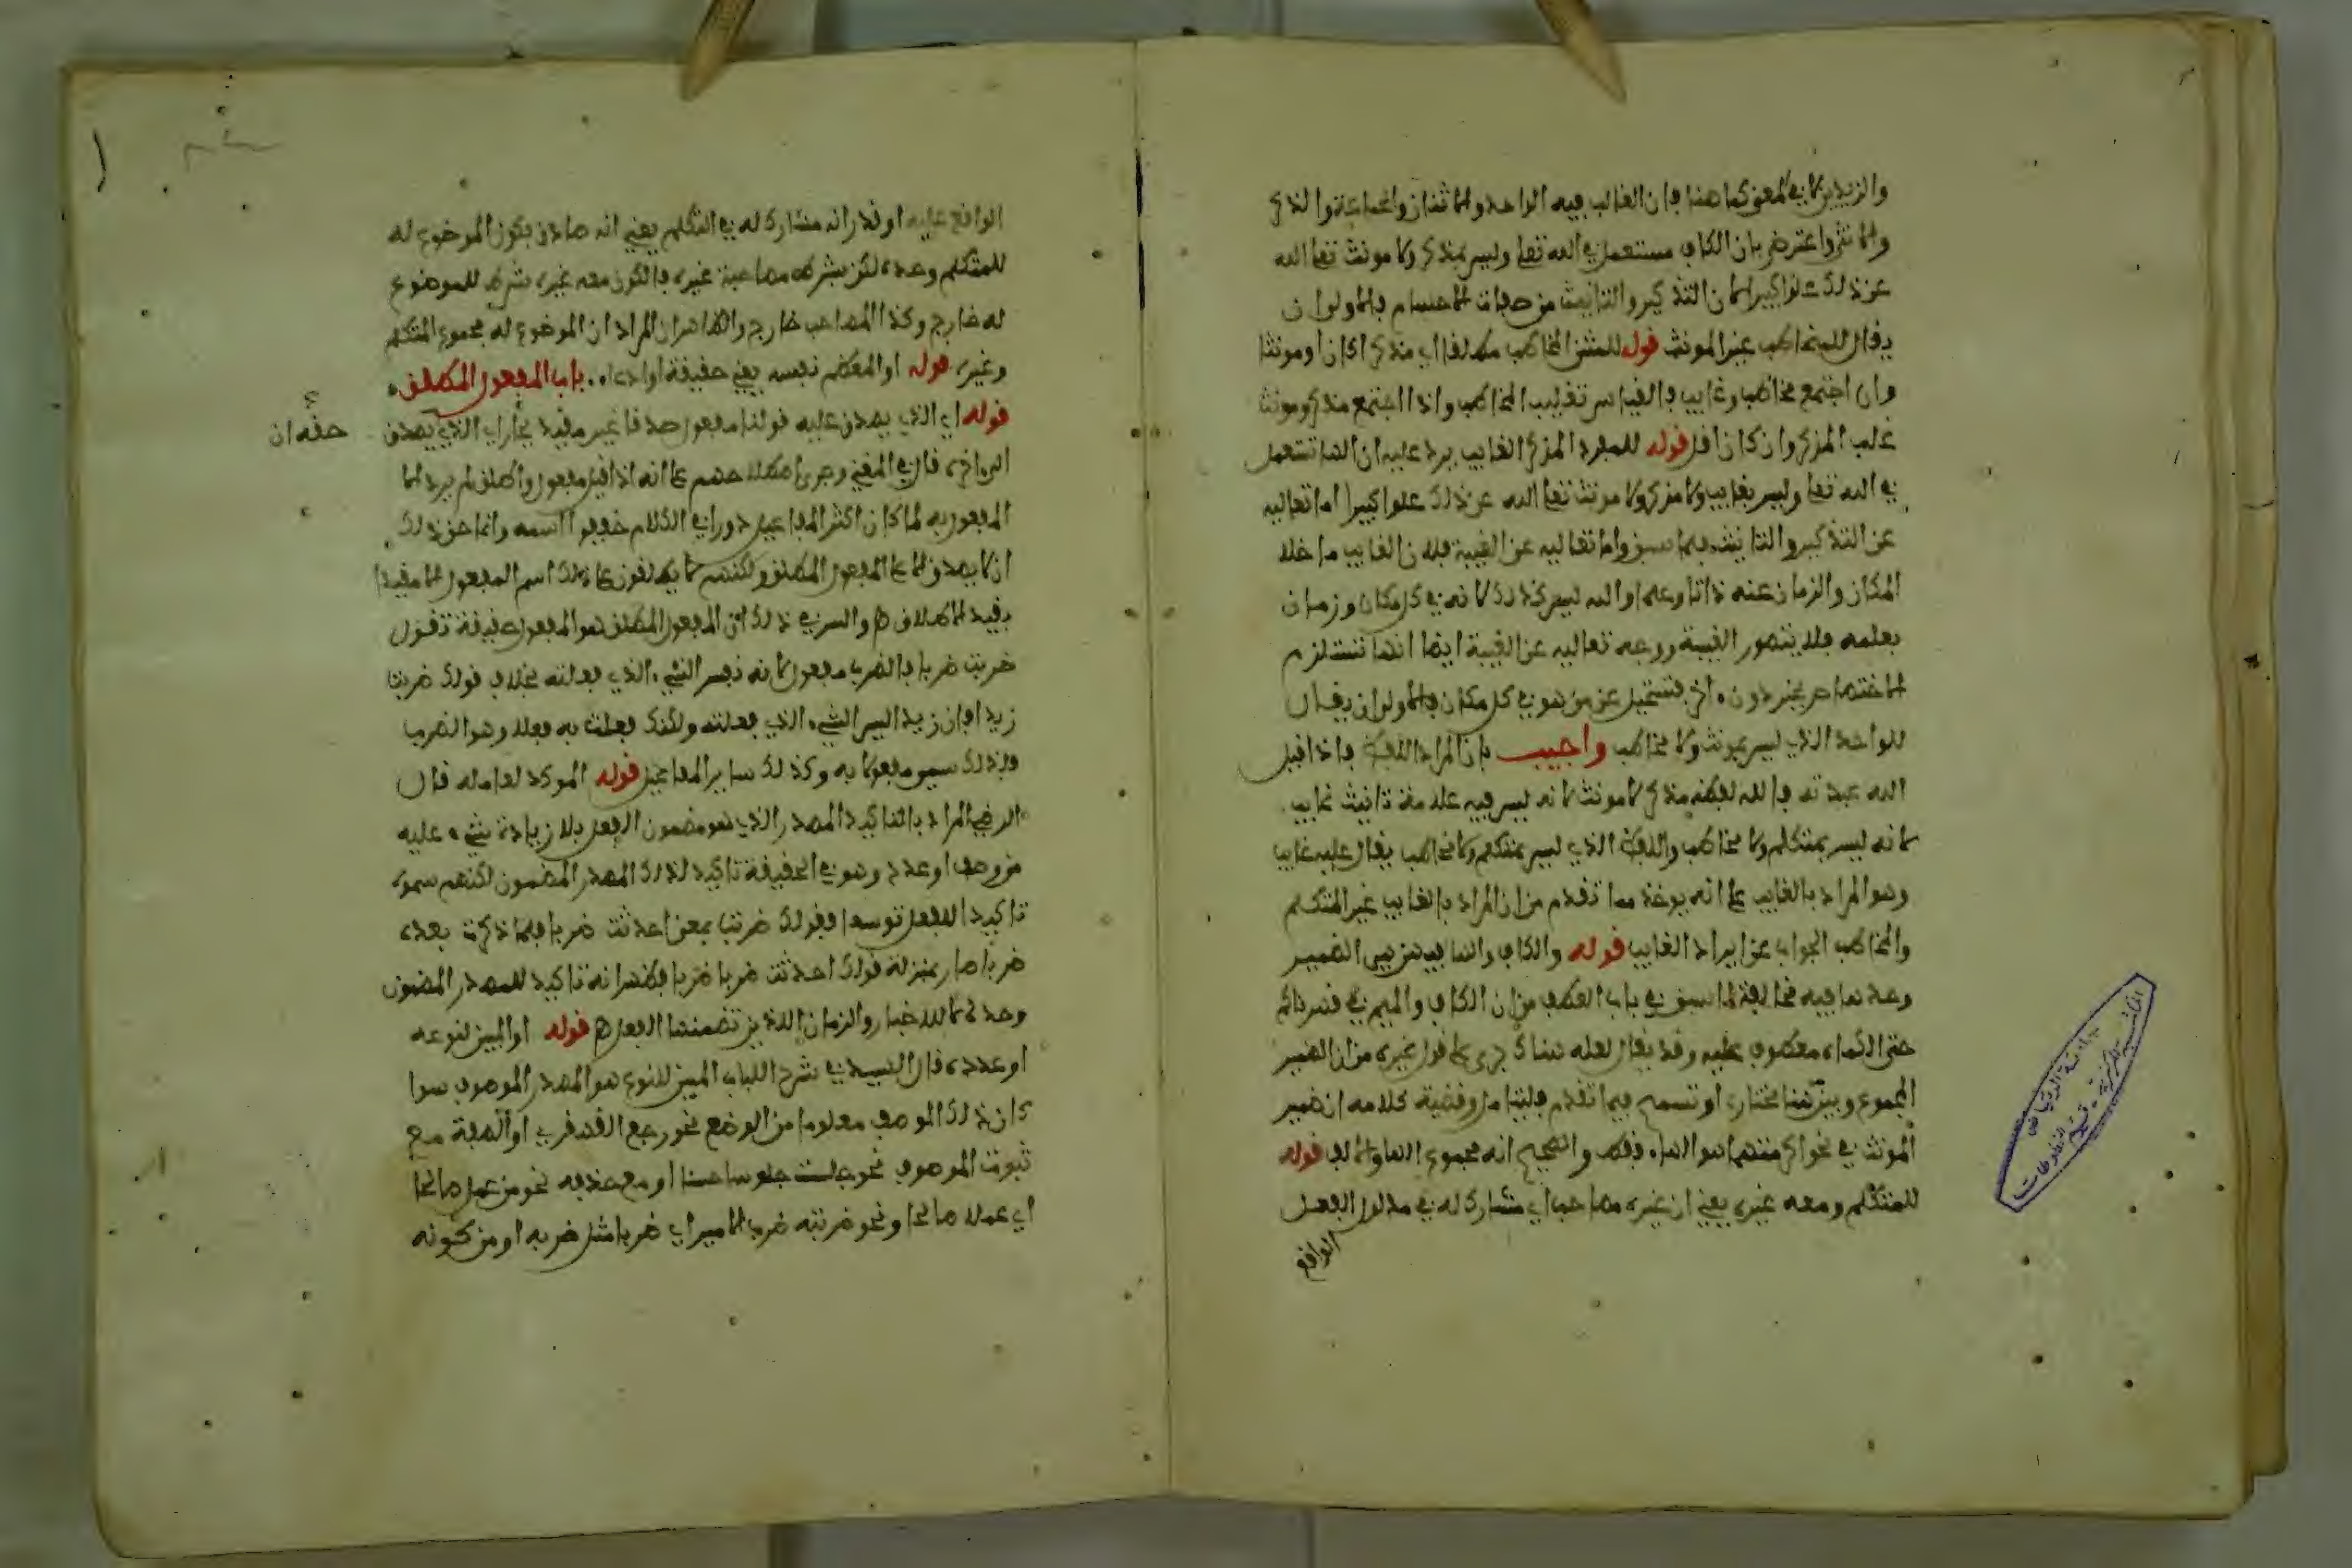 والزيدين لا في المعنى كما هنا فان الغالب فيه الواحد والاثنان والجماعة والذكر
والانثى واعترض بان الكاف مستعمل في الله تعا وليس بمذكر ولا مونث تعا الله
عن ذلك علوا كبيرا لان التذكير والتانيث من صفات الاجسام فالاولى ان
يقال للمخاطب غير المونث قوله للمثنى المخاطب مطلقا اي مذكرا كان او مونثا
وان اجتمع مخاطب وغايب فالقياس تغليب المخاطب واذا اجتمع مذكر ومونث
غلب المذكر وان كان اقل قوله للمفرد المذكر الغايب يرد عليه ان الها تستعمل
في الله تعا وليس بغايب ولا مذكر ولا مونث تعا الله عن ذلك علوا كبيرا اما تعاليه
عن التذكير والتانيث فبما سبق واما تعاليه عن الغيبة فلان الغايب ما خلا
المكان والزمان عنه ذاتا وعلما والله ليس كذلك لانه في كل مكان وزمان
بعلمه فلا يتصور الغيبة ووجه تعاليه عن الغيبة ايضا انها تستلزم
الاختصاص بحيز دون اخر فتستحيل عن من هو في كل مكان فالاولى ان يقال
للواحد الذي ليس بمونث ولا مخاطب واجيب بان المراد اللفظ فاذا قيل
الله عبدته فالله لفظه مذكر لا مونث لانه ليس فيه علامة تانيث غايب
لانه ليس بمتكلم ولا مخاطب واللفظ الذي ليس بمتكلم ولا مخاطب يقال عليه غايب
وهو المراد بالغايب على انه يوخذ مما تقدم من ان المراد بالغايب غير المتكلم
والمخاطب الجواب عن ايراد الغايب قوله والكاف والها فيهن هي الضمير
وحدها فيه مخالفة لما سبق في باب العطف من ان الكاف والميم في قدرناكم
حتى الكماة معطوف عليه وقد يقال لعله هناك جرى على قول غيره من ان الضمير
المجموع وبين هنا مختاره او تسمح فيما تقدم فليتامل وقضية كلامه ان ضمير
المونث في نحو اكرمتها هو الهاء فقط والصحيح انه مجموع الها والالف قوله
للمتكلم ومعه غيره يعني ان غيره مصاحب اي مشارك له في مدلول الفعل
الواقع
الواقع عليه او قدر انه مشارك له في التكلم يعني انه صادق بكون الموضوع له
للمتكلم وحده لكن بشرط مصاحبة غيره فالكون معه غيره شرط للموضوع
له خارج وكذا المصاحب خارج والظاهر ان المراد ان الموضوع له مجموع المتكلم
وغيره قوله او المعظم نفسه يعني حقيقة او ادعاء باب المفعول المطلق
قوله اي الذي يصدق عليه قولنا مفعول صدقا غير مقيد بجار اي الذي يصدق
حقه ان
الى اخره قال في المغني وجرى اصطلاحهم على انه اذا قيل مفعول واطلق لم يرد الا
المفعول به لما كان اكثر المفاعيل دورا في الكلام خففوا اسمه وانما حق ذلك
ان لا يصدق الا على المفعول المطلق ولكنهم لا يطلقون على ذلك اسم المفعول الا مقيدا
بقيد الاطلاق اه والسر في ذلك ان المفعول المطلق هو المفعول حقيقة تقول
ضربت ضربا فالضرب مفعول لانه نفس الشيء الذي فعلته بخلاف قولك ضربت
زيدا فان زيدا ليس الشيء الذي فعلته ولكنك فعلت به فعلا وهو الضرب
فلذلك سمي مفعولا به وكذلك ساير المفاعيل قوله الموكد لعامله قال
الرضي المراد بالتاكيد المصدر الذي هو مضمون الفعل بلا زيادة شيء عليه
من وصف او عدد وهو في الحقيقة تاكيد لذلك المصدر المضمون لكنهم سموه
تاكيدا للفعل توسعا فقولك ضربت بمعنى احدثت ضربا فلما ذكرت بعده
ضربا صار بمنزلة قولك احدثت ضربا ضربا فظهر انه تاكيد للمصدر المضمون
وحده لا للاخبار والزمان اللذين تضمنهما الفعل اه قوله او المبين لنوعه
او عدده قال السيد في شرح اللباب المبين للنوع هو المصدر الموصوف سوا
كان ذلك الوصف معلوما من الوضع نحو رجع القهقرى او الصفة مع
ثبوت الموصوف نحو جلست جلوسا حسنا او مع حذفه نحو من عمل صالحا
اي عملا صالحا ونحو ضربته ضرب الامير اي ضربا مثل ضربه او من كونه